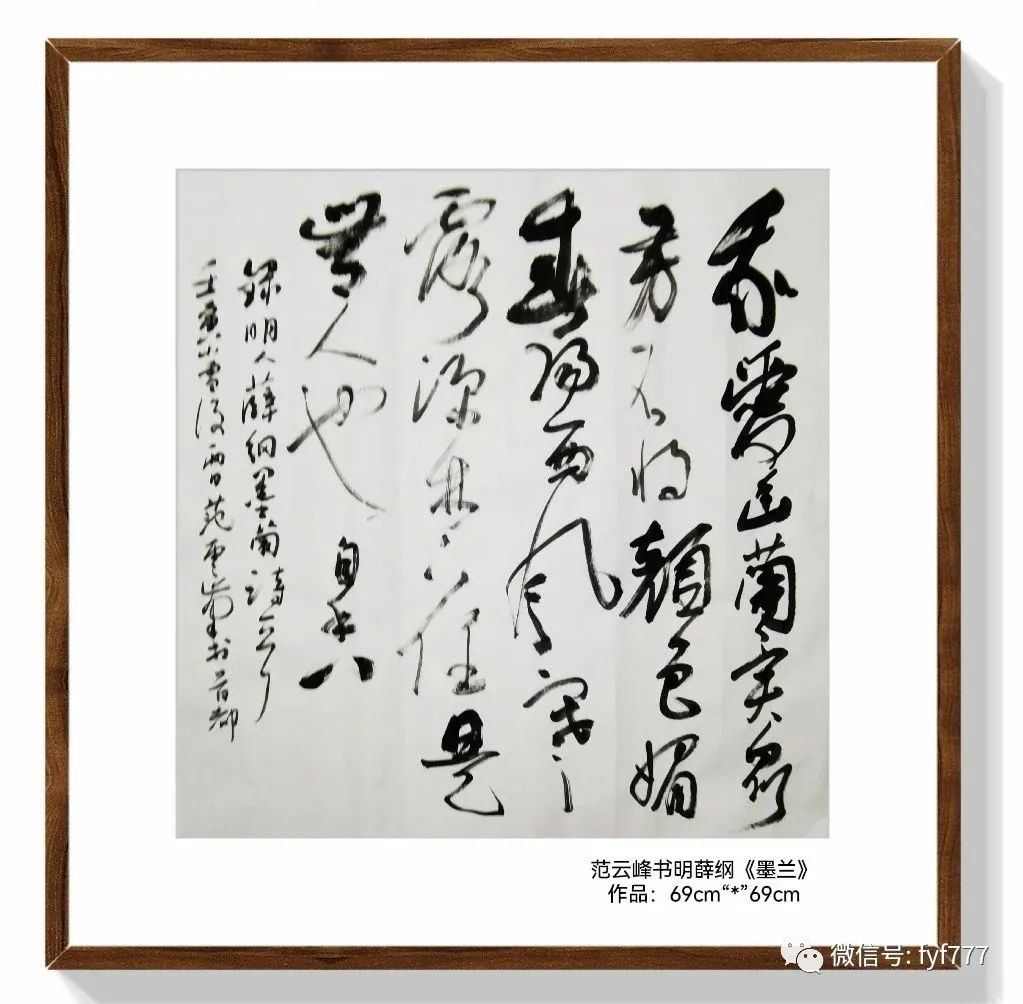 我愛幽蘭異眾
芳不将顏色媚
春陽西風寒
露深林下任是
無人也自香
録明人薛綱墨蘭詩
壬寅小雪後兩日范雲峰書於首都
范云峰书明薛纲《墨兰》
作品：69cm“*”69cm
微信号: fyf777